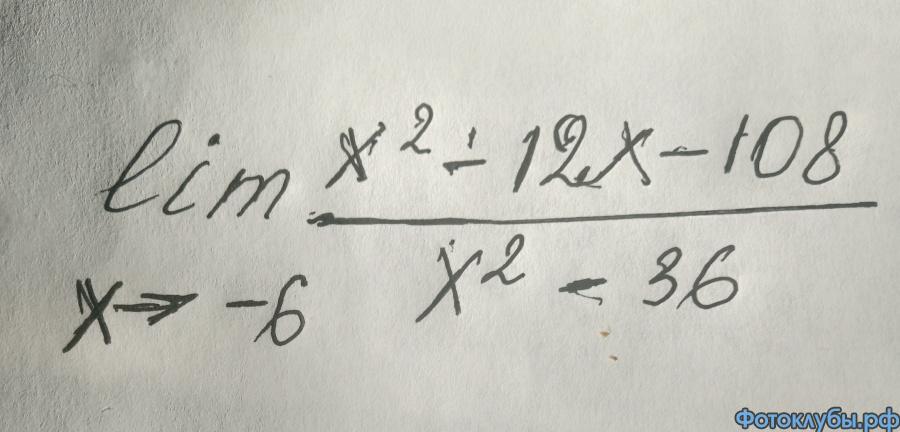 lim x² - 12x - 108
x → -6 x² - 36
Фотоклубы.рф